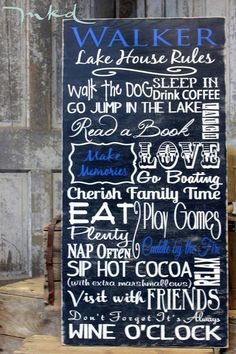 inkd
WALKER
Lake House Rules
Walk the DOG SLEEP IN
Drink COFFEE
GO JUMP IN THE LAKE
Read a Book
LAUGH
Make
Memories
LOVE
Go Boating
Cherish Family Time
EAT Play Games
Plenty
NAP Often Cuddle by the Fire
SIP HOT COCOA
(with extra marshmallows)
RELAX
Visit with FRIENDS
Don't Forget It's Always
WINE O'CLOCK